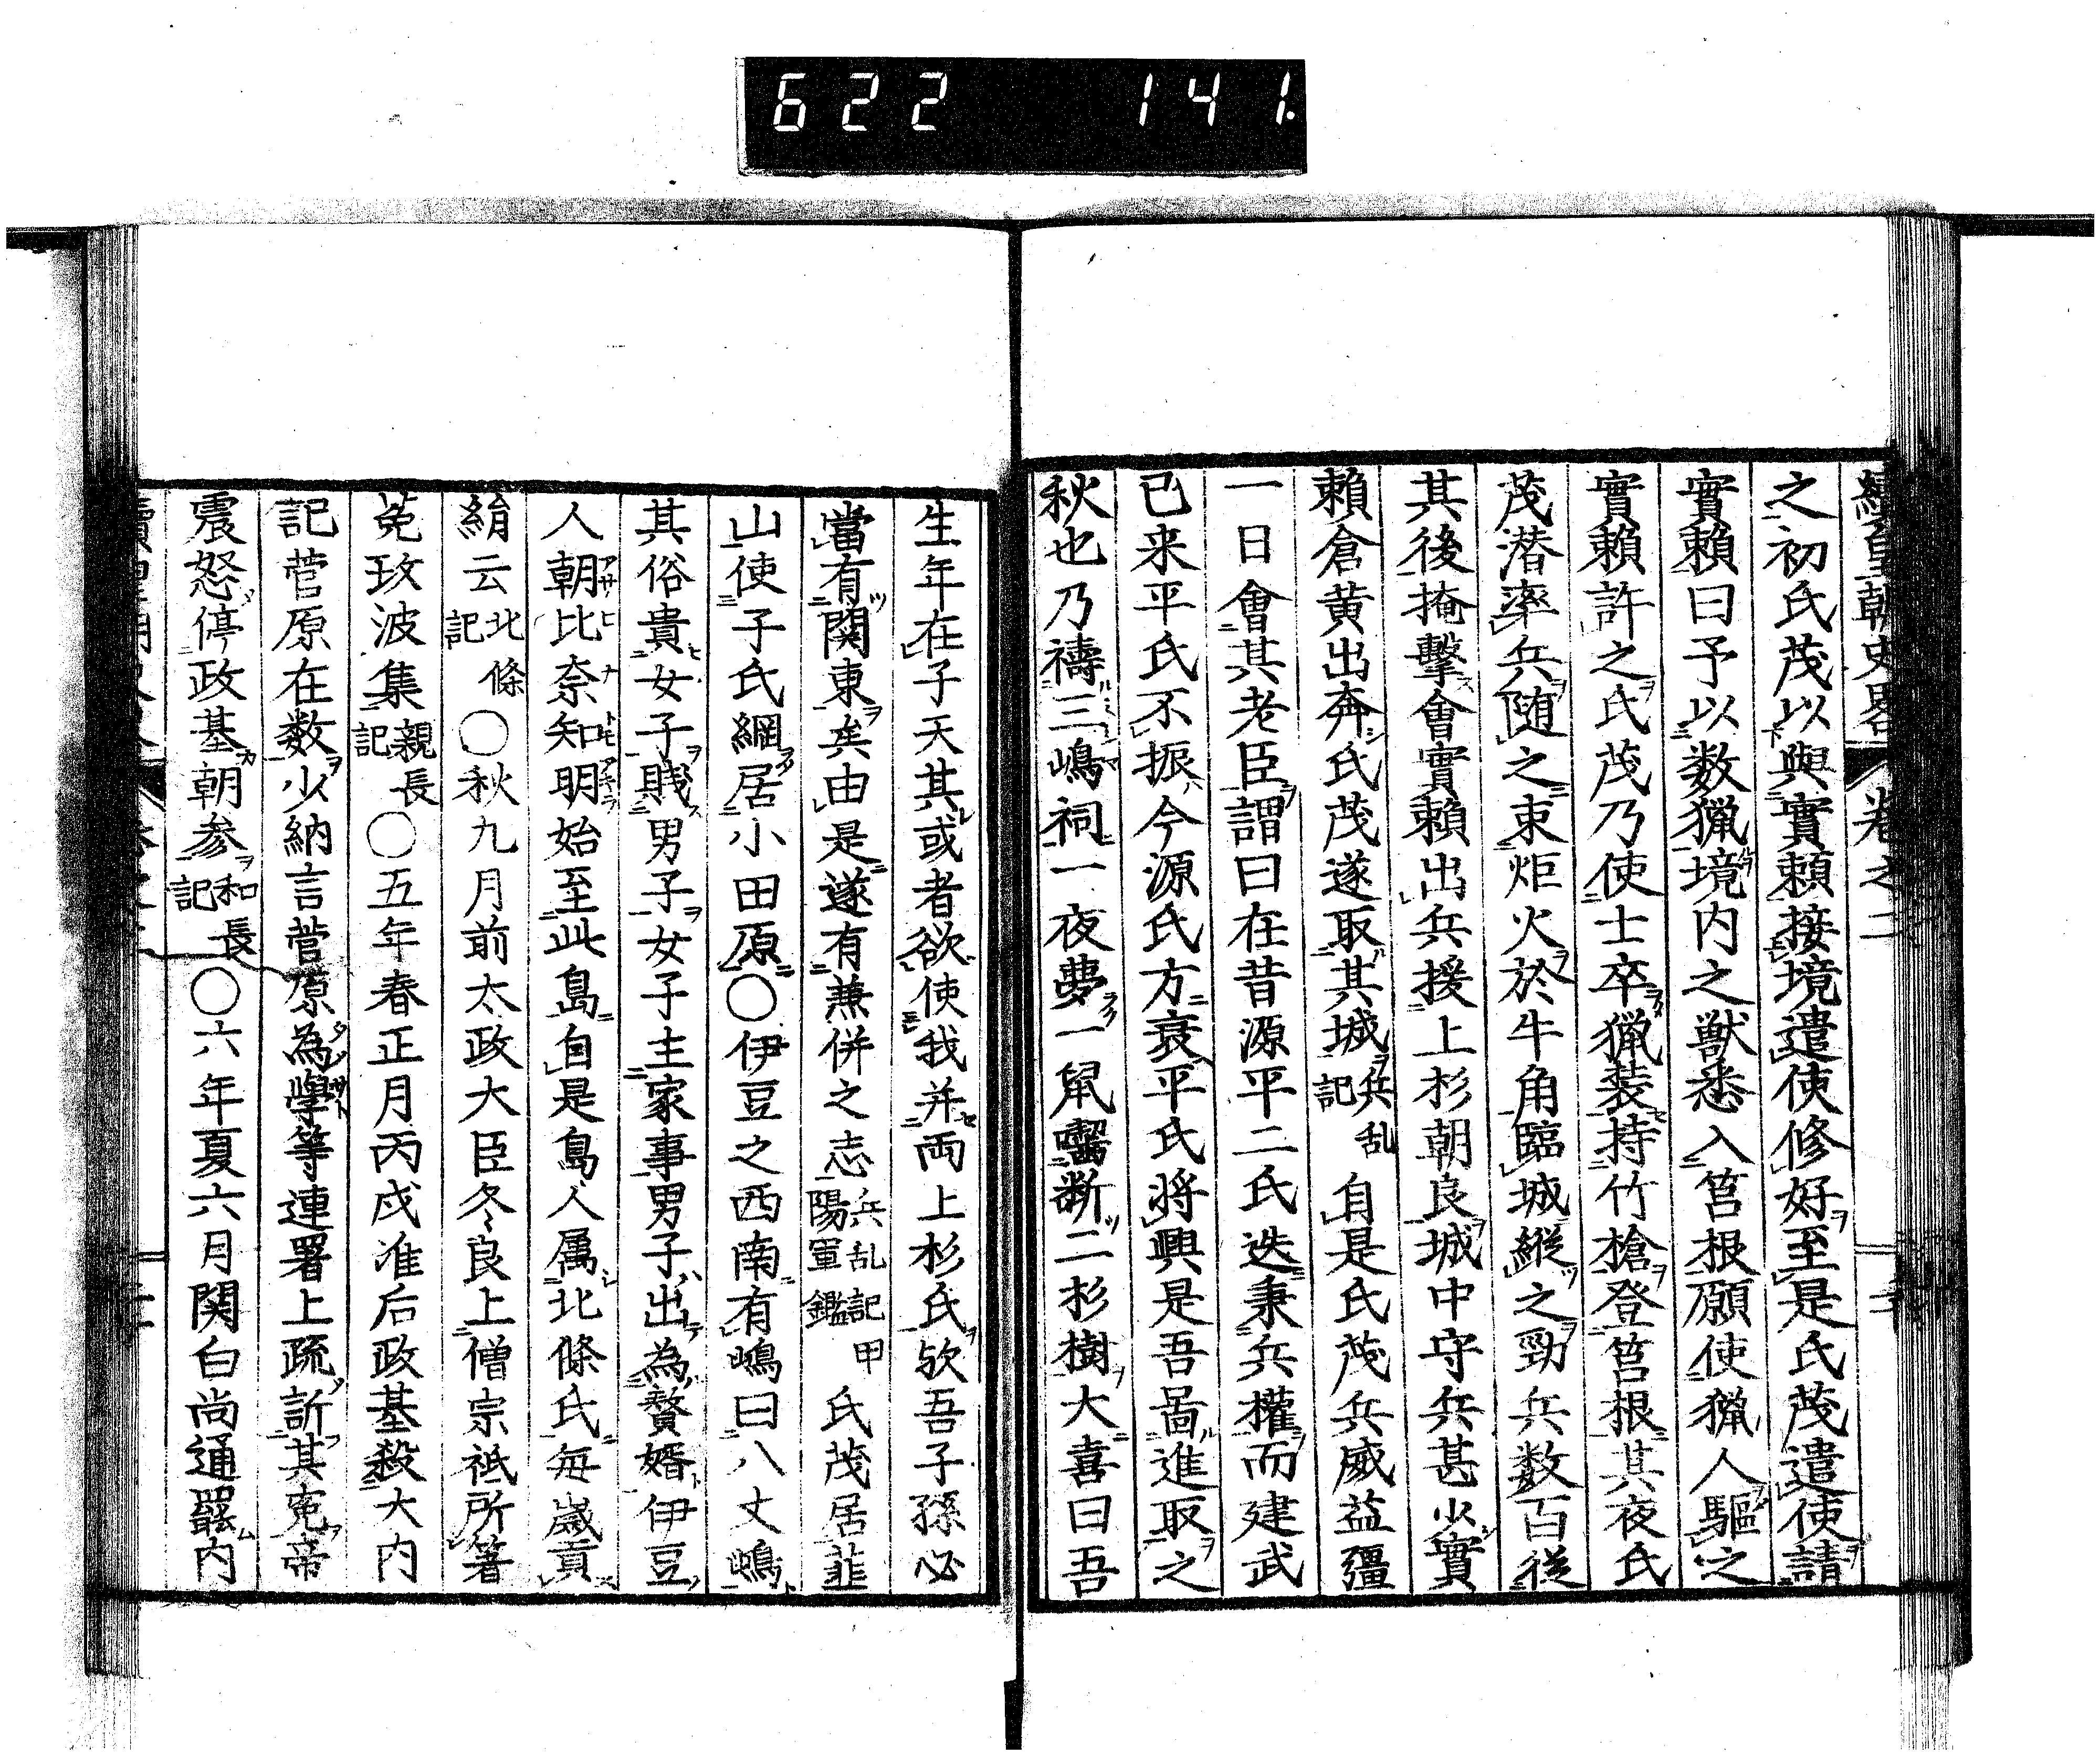 622 141.
續皇朝史畧 卷之二
之初氏茂以與實賴接境遣使修好至是氏茂遣使請
實賴曰予以数獵境内之獣悉入筥根願使獵人驅之
實賴許之氏茂乃使士卒獵装持竹槍登筥根其夜氏
茂潜率兵随之束炬火於牛角臨城縱之勁兵数百從
其後掩擊會實賴出兵援上杉朝良城中守兵甚少實
賴倉黄出奔氏茂遂取其城兵乱記自是氏茂兵威益彊
一日會其老臣謂曰在昔源平二氏迭秉兵權而建武
已来平氏不振今源氏方衰平氏将興是吾啚進取之
秋也乃禱三嶋祠一夜夢一鼠囓断二杉樹大喜曰吾
生年在子天其或者欲使我并両上杉氏欤吾子孫必
當有関東矣由是遂有兼併之志兵乱記甲陽軍鑑氏茂居韮
山使子氏綱居小田原○伊豆之西南有嶋曰八丈嶋
其俗貴女子賤男子女子主家事男子出為贅婿伊豆
人朝比奈知明始至此島自是島人属北條氏毎歳貢
絹云北條記○秋九月前太政大臣冬良上僧宗祇所著
菟玖波集親長記○五年春正月丙戌准后政基殺大内
記菅原在数少納言菅原為學等連署上疏訴其寃帝
震怒停政基朝参和長記○六年夏六月関白尚通罷内